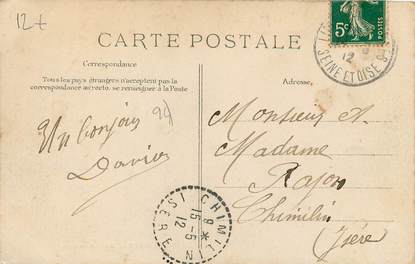 12+
CARTE POSTALE
Correspondance
Tous les pays étrangers n'acceptent pas la
correspondance au verso, se renseigner à la Poste
Adresse,
5c
12
SEINE ET OISE
Un bonjour
94
Monsieur et
Madame
Rajon
Chimilin
(Isère)
CHIMILIN
8 *
15-5
12
ISÈRE